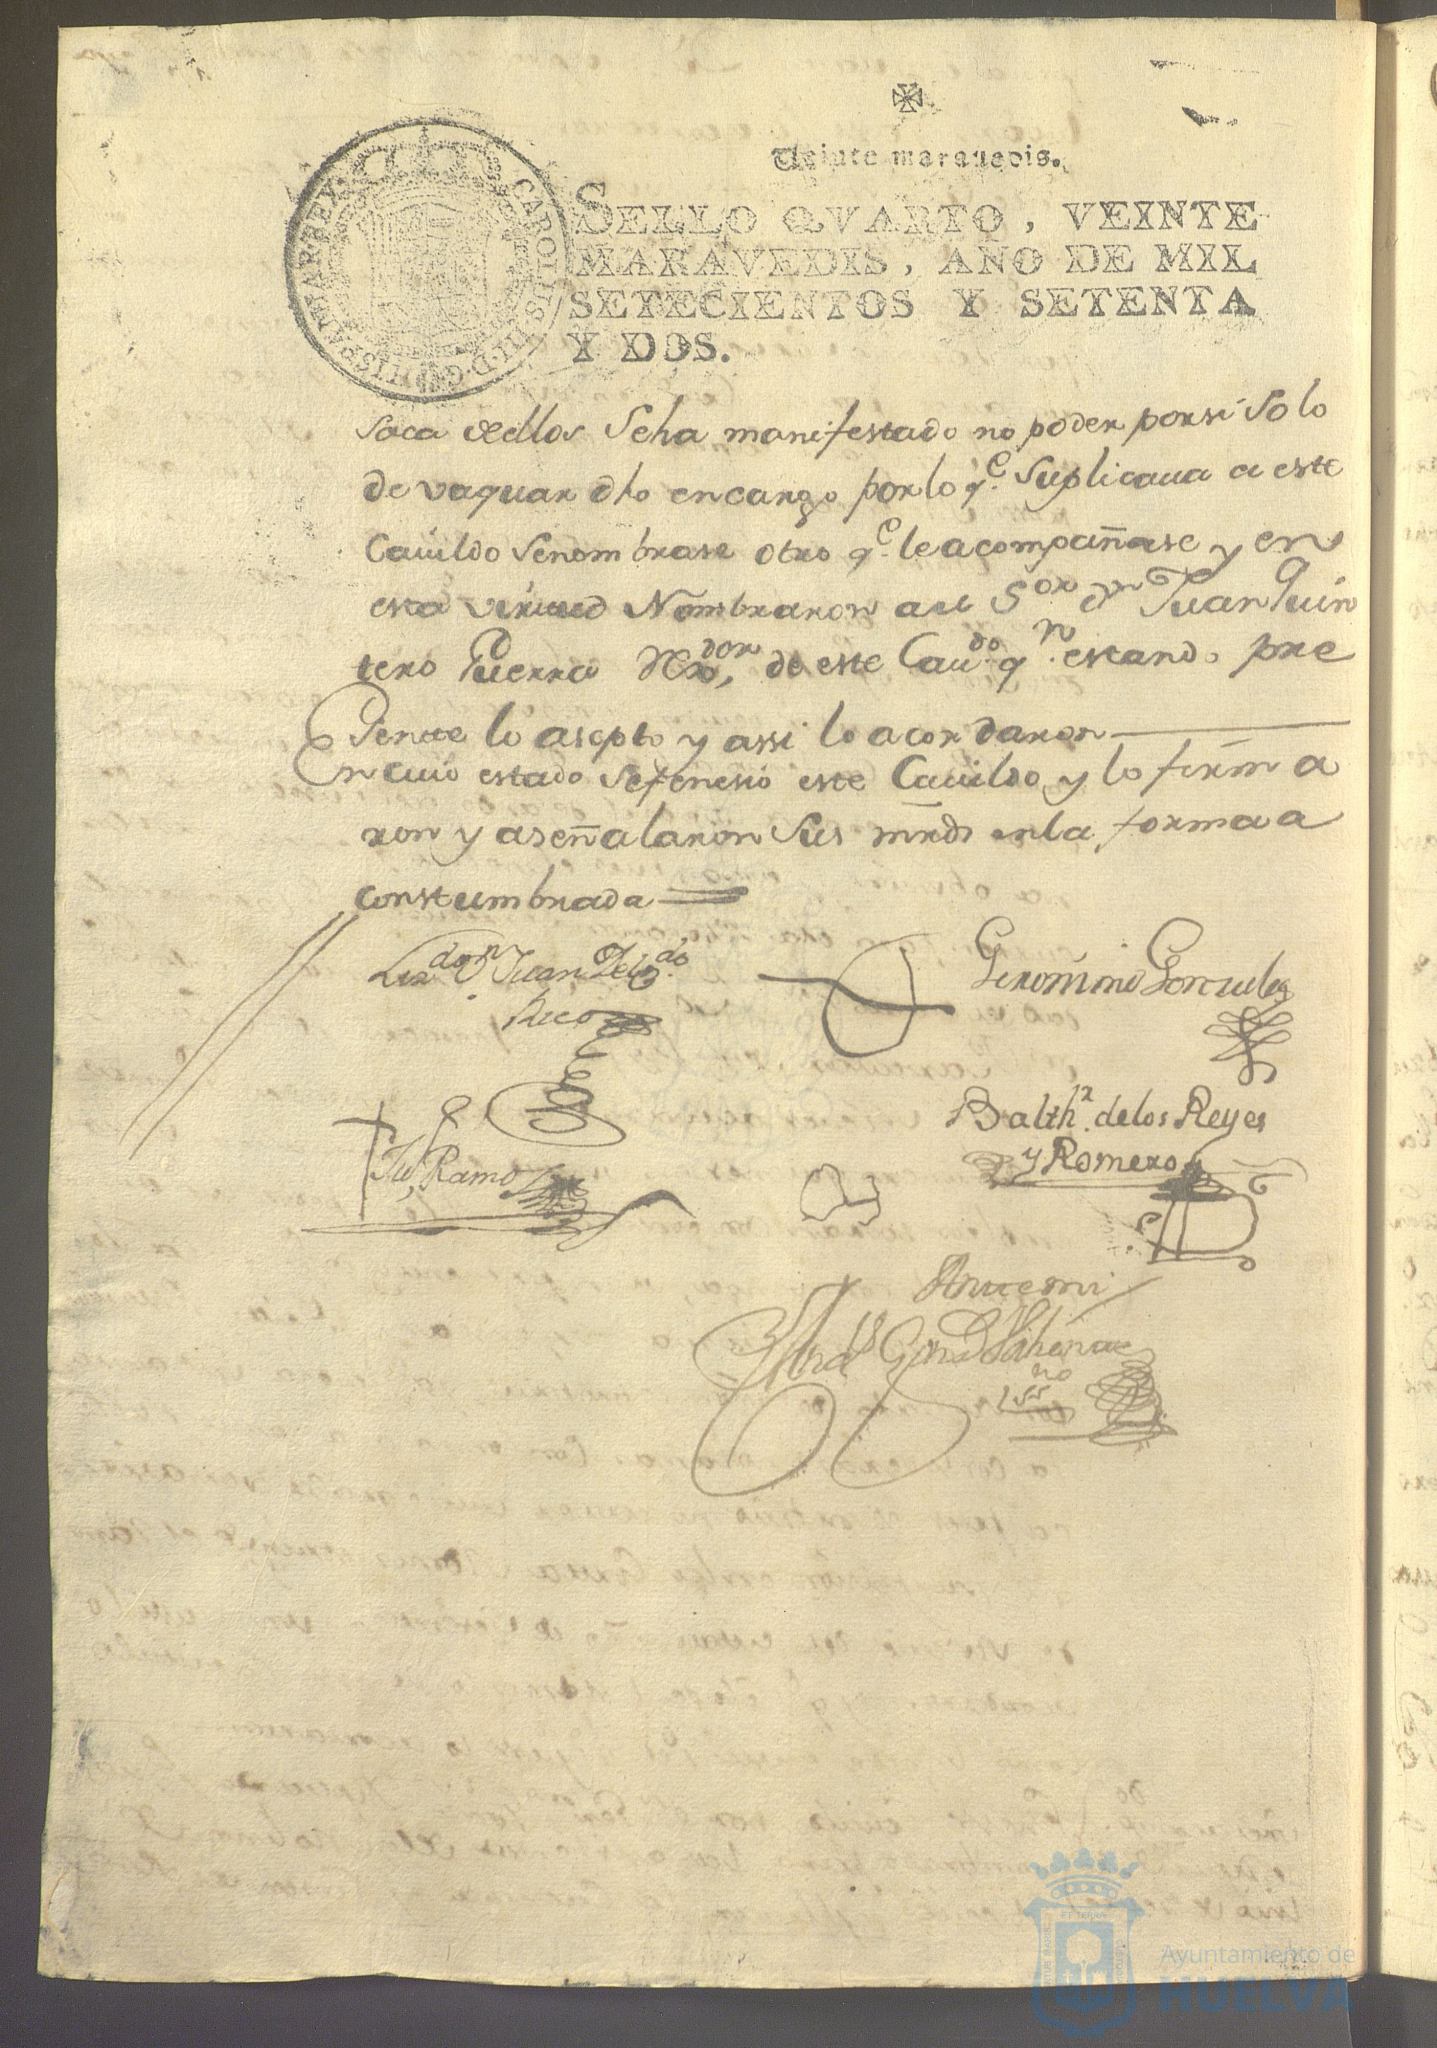 Veinte marauedis.
SELLO QVARTO, VEINTE
MARAVEDIS, AÑO DE MIL
SETECIENTOS Y SETENTA
Y DOS.
CAROLUS III D G HISPANIAR REX
saca dellos Seha manifestado no poder porsi Solo
de vaquar dho encargo porlo qe. Suplicaua a este
Cauildo Senombrase otro qe. leacompañase y en
esta virtud Nombraron a el Sor. dn Juan Quin
tero Guerra Rexdor, de este Caudo. qn. estando pre
sente lo asepto y assi lo acordaron
En cuio estado Sefenesio este Cauildo y lo firma
ron y aseñalaron Sus mrds enla forma a
constumbrada
Lizdo Dn Juan
Rico
Geronimo Gonzales
Balthr. delos Reyes
y Romero
Ju, Ramos
Antemi
Ayuntamiento de
HUELVA